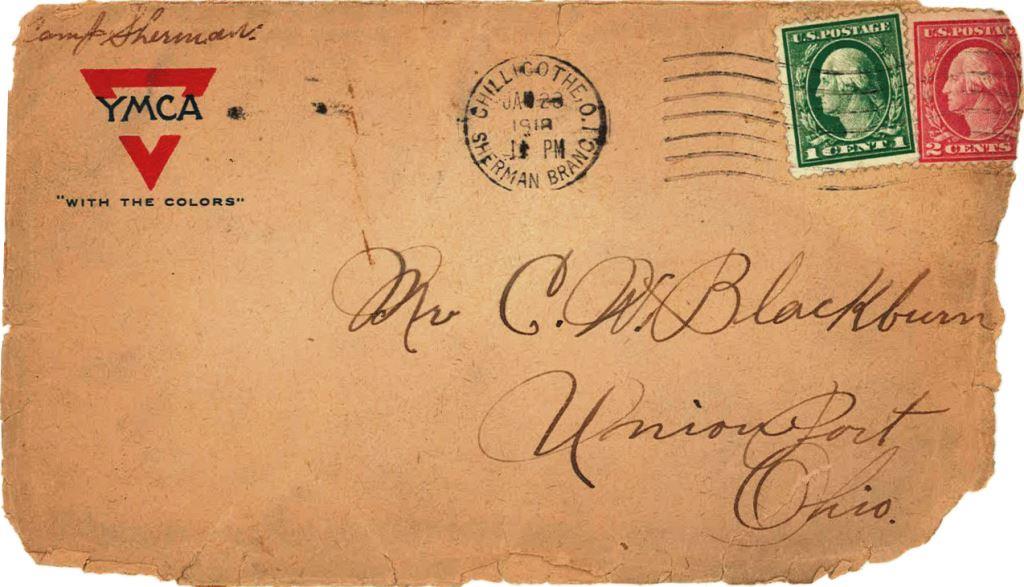 Camp Sherman.
YMCA
"WITH THE COLORS"
CHILLICOTHE, O.
SHERMAN BRANCH
JAN 28
1918
PM
U.S. POSTAGE
1 CENT 1
U.S. POSTA
2 CENTS
Mr C. W. Blackburn
Union Port
Ohio.